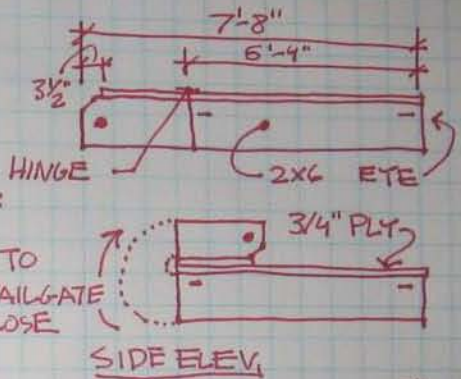 7'-8"
6'-4"
3½"
HINGE
2X6 EYE
3/4" PLY
TO
AILGATE
LOSE
SIDE ELEV.